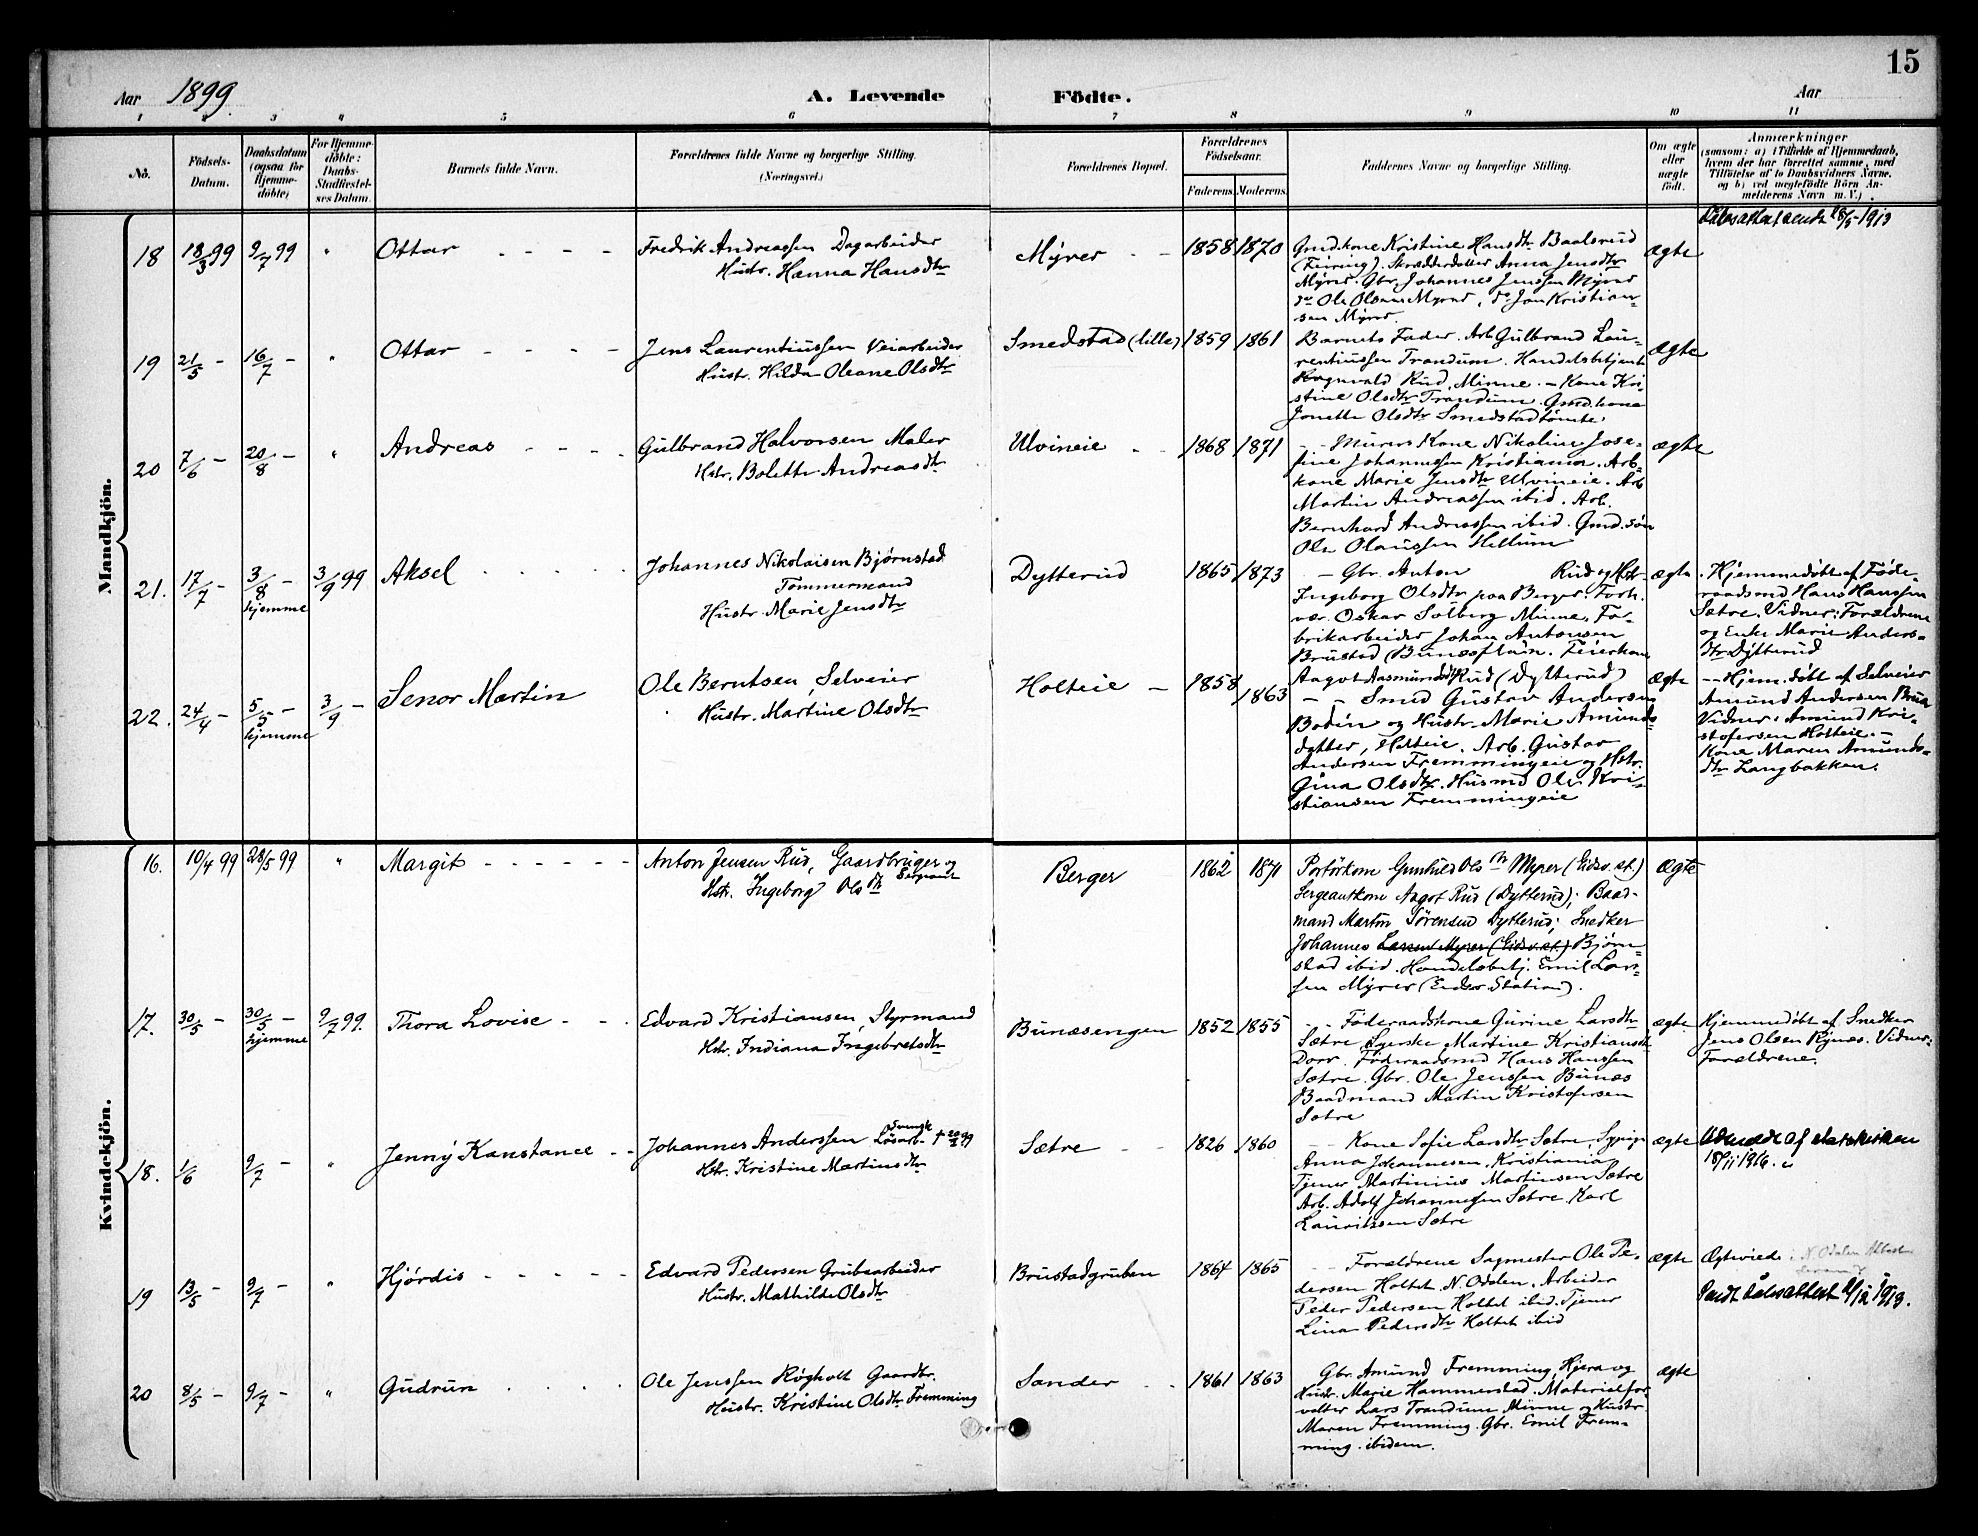 15
Aar 1899.
A. Levende Födte.
Aar
1 2 3 4 5 6 7 8 9 10 11
No.
Födsels-
Datum.
Daabsdatum
(ogsaa for
Hjemme-
døbte)
For Hjemme-
døbte:
Daabs-
Stadfæstel-
ses Datum.
Barnets fulde Navn.
Forældrenes fulde Navne og borgerlige Stilling.
(Næringsvei.)
Forældrenes Bopæl.
Forældrenes
Födselsaar.
Faderens. Moderens.
Faddernes Navne og borgerlige Stilling.
Om ægte
eller
uægte
født.
Anmærkninger
(saasom: a) i Tilfælde af Hjemmedaab,
hvem der har forrettet samme, med
Tilføielse af to Daabsvidners Navne.
og b) ved uægtefödte Börn An-
melderens Navn m. V.)
Mandkjön.
18 18/3 99 9/7 99 " Ottar
Fredrik Andreassen Dagarbeider
Hustr. Hanna Hansdtr
Mÿrer 1858 1870
Gmd.kone Kristine Hansdtr Baalsrud
(Feiring). Skrædderdatter Anna Jensdtr
Mÿrer. Gbr. Johannes Jenssen Mÿrer
do Ole Olsen Myrer, do Jon Kristian-
sen Mÿrer.
ægte
19 21/5 - 16/7 - " Ottar
Jens Laurentiussen Veiarbeider
Hustr. Hilda Oleane Olsdtr
Smedstad (lille) 1859 1861
Barnets Fader. Arb. Gulbrand Lau-
rentiussen Trandum. Handelsbetjent
Rognvald Rud, Minne. - Kone Kri-
stine Olsdtr Trandum. Gmd.kone
Jonette Olsdtr Smedstadtomte.
ægte
20 7/6 - 20/8 - " Andreas
Gulbrand Halvorsen Maler
Hstr. Bolette Andreasdtr
Ulvineie 1868 1871
- - Murers Kone Nikoline Jose-
fine Johannessen Kristiania. Arb.
kone Marie Jensdtr Ulvineie. Arb
Martin Andreassen ibid. Arb.
Bernhard Andreassen ibid. Gmd. søn
Ole Olaussen Hellum
ægte
21. 17/7 - 3/8 - hjemme 3/9 99 Aksel
Johannes Nikolaisen Bjørnstad
Tømmermand
Hustr. Marie Jensdtr
Dytterud 1865 1873
- Gbr. Anton Rud og Hstr.
Ingeborg Olsdtr paa Berger. Forh.
vær. Oskar Solberg Minne. Fa-
brikarbeider Johan Antonsen
Brustad (Bunæsflain.
Aagot Aasmundsdtr Rud (Dytterud)
ægte
Hjemmedøbt af Føde-
raadsmd Hans Hanssen
Sætre. Vidner: Forældrene
og Enke Marie Anders-
dtr Dÿtterud
22. 24/4 - 5/5 - hjemme 3/9 - Senor Martin
Ole Berntsen, Selveier
Hustr. Martine Olsdtr
Holteie 1858 1863
- - Smed Gustav Andersen
Bodin og Hustr. Marie Amunds-
datter, Holteie. Arb. Gustav
Andersen Fremmingeie og Hstr.
Gina Olsdtr. Husmd Ole Kri-
stiansen Fremmingeie
ægte
-- Hjem. døbt af Selveier
Amund Andersen
Vidner: Amund Kri-
stofersen Holteie. -
Kone Maren Amunds-
dtr Langbakken.
Kvindekjön.
16. 10/4 99 28/5 99 " Margit
Anton Jensen Rud, Gaardbruger og
Sergeant
Hstr. Ingeborg Olsdtr
Berger 1862 1871
Portörkone Gunhild Olsdtr Myrer (Eidsv. st.)
Sergeantkone Aagot Rud (Dytterud); Baad-
mand Martin Sørensen Dytterud; Snedker
Johannes Larsen Myrer (Eidsv. st.) Bjørn-
stad ibid. Handelsbetj. Emil Lar-
sen Mÿrer (Eidsv. Station).
ægte
17. 30/5 - 30/5 - hjemme 9/7 99. Thora Lovise
Edvard Kristiansen, Styrmand
Hstr. Indiana Ingebretsdtr
Bunæsengen 1852 1855
- - Föderaadskone Gurine Larsdtr
Sætre. Syerske Martine Kristiansdtr
Dorr. Föderaadsmd Hans Hanssen
Sætre. Gbr. Ole Jenssen Bunæs
Baadmand Martin Kristofersen
Sætre
ægte
Hjemmedøbt af Snedker
Jens Olsen Rÿnæs. Vidner:
Forældrene.
18. 1/6 9/7 - " Jennÿ Konstance
Johannes Anderssen Svensk Løsarb.
Hstr. Kristine Martinsdtr
Sætre 1826 1860
- - Kone Sofie Larsdtr Sætre. Sypige
Anna Johannesen, Kristiania
Tjener Martinius Martinsen Sætre
Arb. Adolf Johannessen Sætre. Karl
Lauritssen Sætre
ægte
Udmeldt af statskirken
18/11 1916.
19 13/5 - 9/7 - " Hjördis
Edvard Pedersen Grubearbeider
Hustr. Mathilde Olsdtr
Brustadgruben 1864 1865
- - Forældrene Sagmester Ole Pe-
dersen Holtet N. Odalen. Arbeider
Peder Pedersen Holtet ibid. Tjener
Lina Pedersdtr Holtet ibid
ægte
Ægteviede i N. Odalen
Sendt Daabsattest 1913.
20 8/5 - 9/7 - " Gudrun
Ole Jenssen Røgholt Gaardbr.
Hustr. Kristine Olsdtr Fremming
Sander 1861 1863
Gbr. Amund Fremming, Hjera og
Hustr. Marie Hammerstad. Materialfor-
valter Lars Trandum, Minne og Hustr
Maren Fremming. Gbr. Emil Frem-
ming ibidem.
ægte